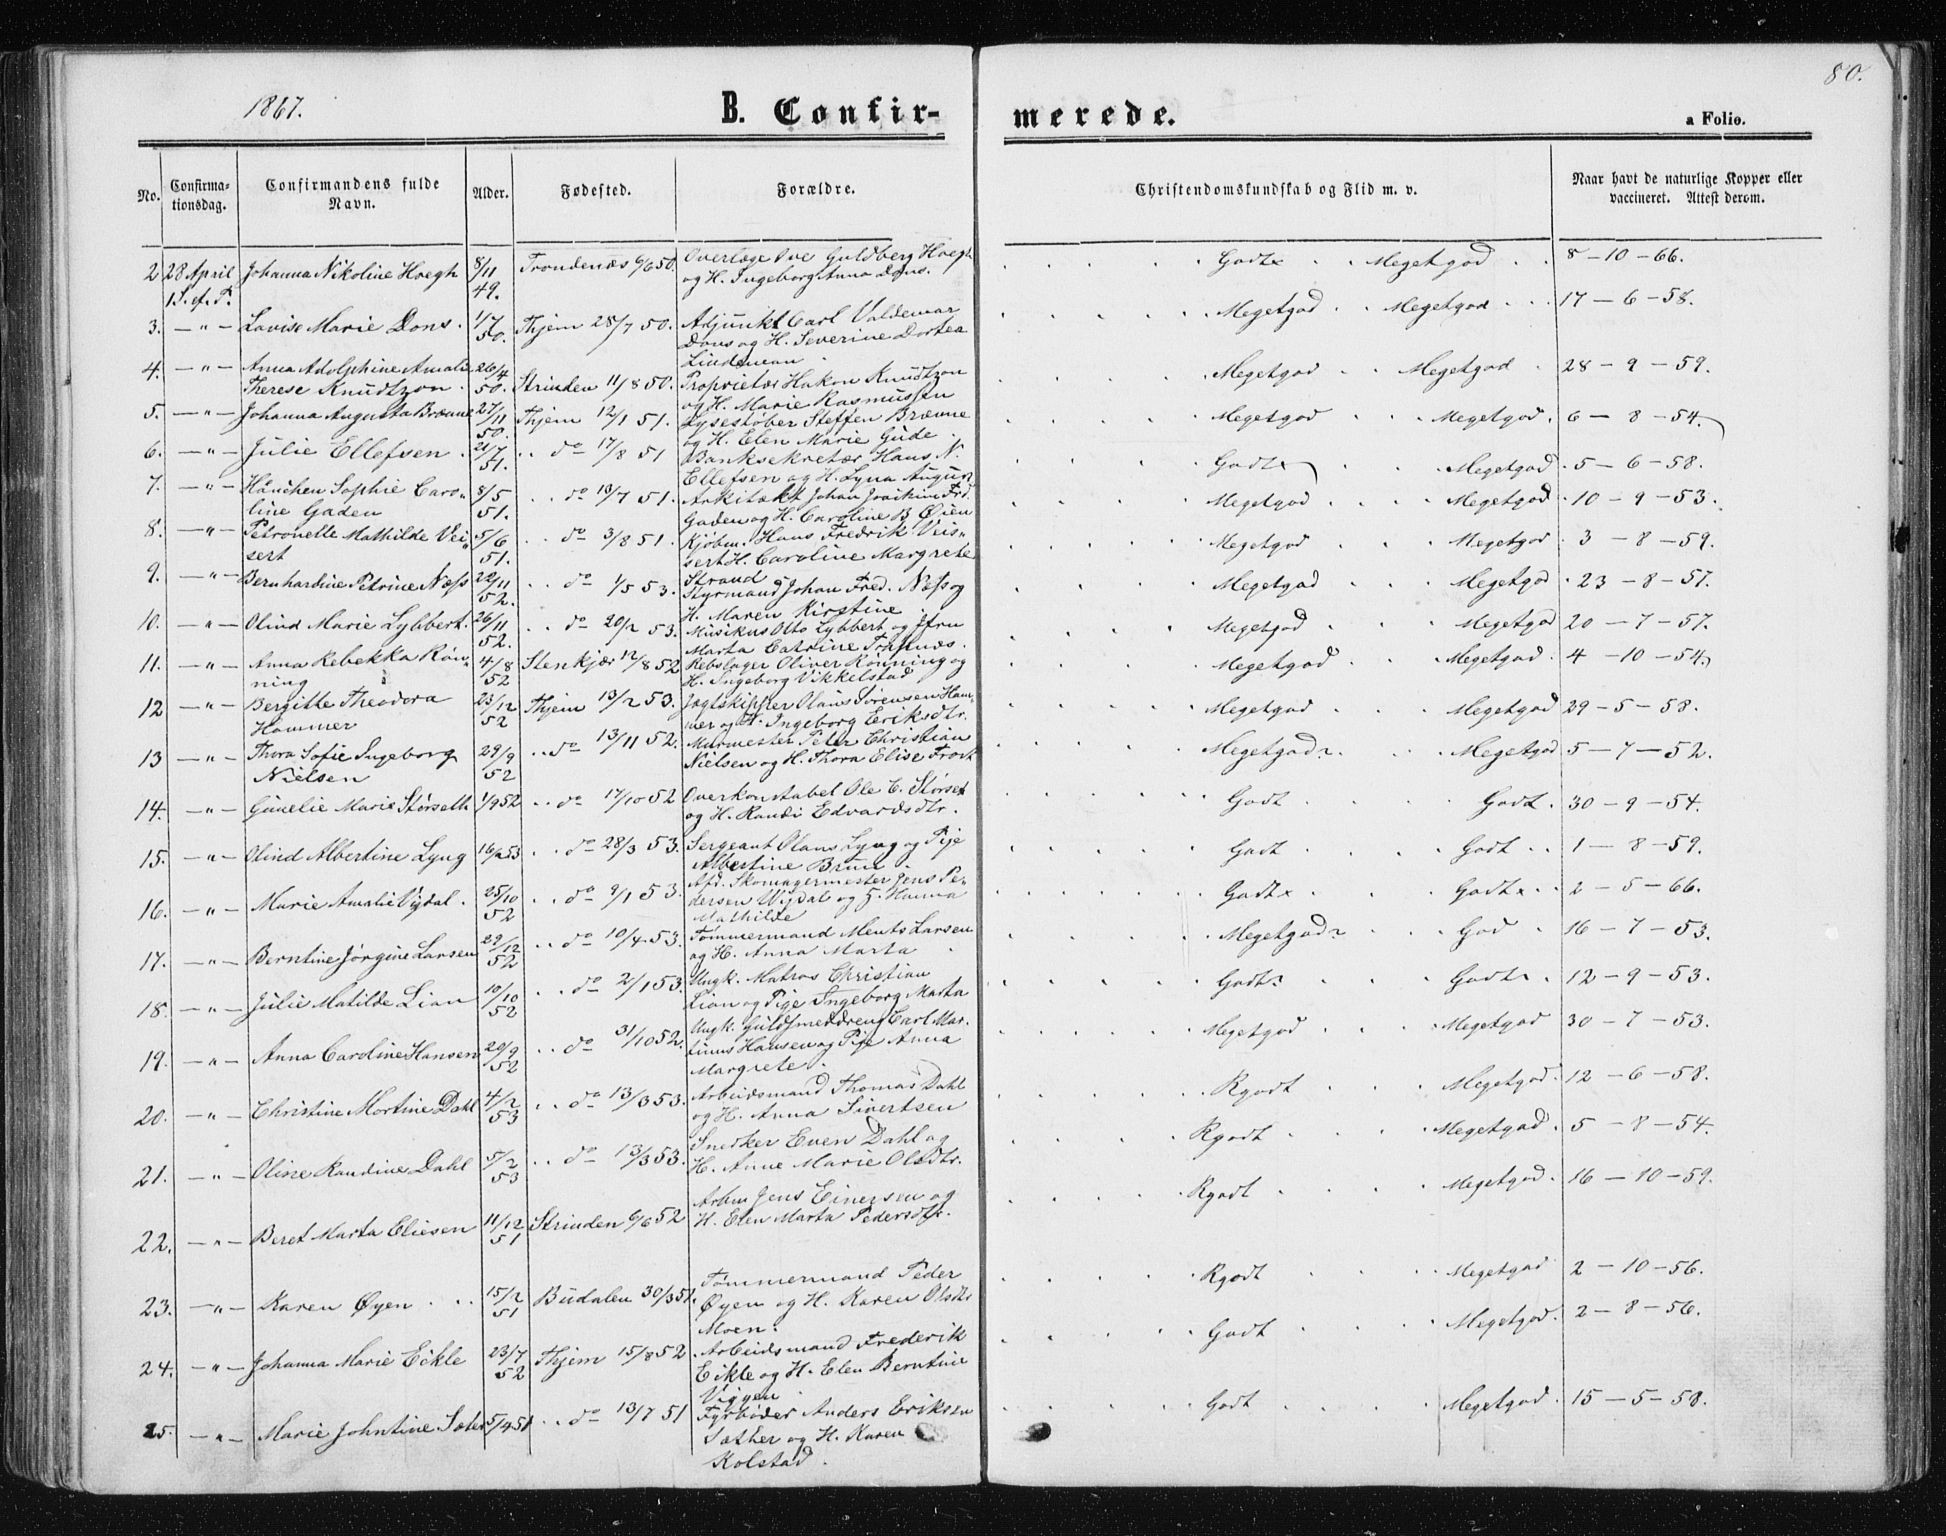 80.
1867.
B. Confir-
merede.
a Folio.
No.
Confirma-
tionsdag.
Confirmandens fulde
Navn.
Alder.
Fødested.
Forældre.
Christendomskundskab og Flid m. v.
Naar havt de naturlige Kopper eller
vaccineret. Attest derom.
2 28 April Johanna Nikoline Hoegh 8/11 Trondenæs 6/6 50. Overlæge Ove Guldberg Hoegh Godt Megetgod 8-10-66.
1 S. ef. P. 49. og H. Ingeborg Anna Dons.
3. -"- Lovise Marie Dons. 1/7 Thjem 28/7 50. Adjunkt Carl Valdemar Megetgod Megetgod 17-6-58.
50. Dons og H. Severine Dortea
Lindeman
4. -"- Anna Adolphine Amalie 26/4 Megetgod Megetgod 28-9-59.
Therese Knudtzon. 50. Strinden 11/8 50. Proprietær Hakon Knudtzon
og H. Marie Rasmussen
5. -"- Johanna Augusta Brænne 27/11 Thjem 12/1 51. Lysestøber Steffen Brænne Megetgod Megetgod. 6-8-54.
50. og H. Elen Marie Gude.
6. -"- Julie Ellefsen. 21/7 do 17/8 51 Banksekretær Hans N. Godt Megetgod 5-6-58.
51. Ellefsen og H. Lyna August
7. -"- Hanchen Sophie Caro- 8/5 do 10/7 51. Arkitækt Johan Joachim Frd. Megetgod Megetgod 10-9-53.
line Gaden 51. Gaden og H. Caroline B Øien
8. -"- Petronelle Mathilde Vei- 5/6 do 3/8 51. Kjøbm. Hans Fredrik Veis- Megetgod Megetgod 3-8-59.
sert 51. sert H. Caroline Margrete
Strand
9. -"- Bernhardine Petrine Næss 22/11 do 1/5 53. Styrmand Johan Fred. Næss og Megetgod Megetgod 23-8-57.
52. H. Maren Kirstine
10. -"- Olind Marie Lybbert. 26/11 do 20/2 53. Musikus Otto Lybbert og Jfru Megetgod Megetgod 20-7-57.
52. Marta Catrine
11. -"- Anna Rebekka Røn- 4/8 Stenkjær 12/8 52 Rebslager Oliver Rønning og Megetgod Megetgod. 4-10-54
ning 52 H. Ingeborg Vikkelstad
12 -"- Bergitte Theodora 23/12 Thjem 13/2 53. Jagtskipper Olaus Sørensen Ham- Megetgod Megetgod 29-5-58.
Hammer 52 mer og H. Ingeborg Eriksdtr.
13 -"- Thora Sofie Ingeborg 29/9 do 13/11 52. Murmester Peter Christian Megetgod Megetgod 5-7-52.
Nielsen 52 Nielsen og H. Thora Elise Frost
14. -"- Gunelie Marie Størseth 1/9 52 do 17/10 52 Overkonstabel Ole C. Størset Godt Godt. 30-9-54.
og H. Randi Edvardsdtr.
15. -"- Olind Albertine Lyng 16/2 53 do 28/3 53. Sergeant Olaus Lyng og Pige Godt Godt 1-8-59.
Albertine Bruun
16. -"- Marie Amalie Vigdal. 25/10 do 9/1 53. Afd. Skomagermester Jens Pe- Godt Godt 2-5-66.
52 dersen Vigdal og H. Hanna
Mathilde
17. -"- Berntine Jørgine Larsen 29/12 do 10/4 53. Tømmermand Ments Larsen Megetgod God 16-7-53.
52 og H. Anna Marta
18. -"- Julie Matilde Lian 10/10 do 2/1 53. Ungk. Matros Christian Godt Godt 12-9-53.
52 Lian og Pige Ingeborg Marta
19. -"- Anna Caroline Hansen 20/9 do 31/10 52. Ungk. Guldsmeddreng Carl Mar- Megetgod Megetgod 30-7-53.
52 tinus Hansen og Pige Anna
Margrete.
20. -"- Christine Mortine Dahl 4/2 do 13/3 53. Arbeidsmand Thomas Dahl Rgodt Megetgod. 12-6-58.
53 og H. Anna Sivertsen
21. -"- Oline Randine Dahl 5/2 do 13/3 53. Snedker Even Dahl og Rgodt Megetgod. 5-8-54.
53 H. Anne Marie Olsdtr.
22. -"- Beret Marta Eliesen 11/12 Strinden 6/6 52 Arbm Jens Einersen og Rgodt Megetgod. 16-10-59.
51 H. Elen Marta Pedersdtr.
23. -"- Karen Øyen 15/2 Budalen 30/3 51. Tømmermand Peder Rgodt Megetgod 2-10-56.
51 Øyen og H. Karen Olsdtr
Moen.
24. -"- Johanna Marie Eikle 23/7 Thjem 15/8 52. Arbeidsmand Frederik Godt Megetgod. 2-8-56.
52 Eikle og H. Elen Berntine
Viggen
25. -"- Marie Johntine Sæter 5/4 51 do 13/7 51 Fyrbøder Anders Eriksen Godt Megetgod. 15-5-58.
Sæther og H. Karen
Kolstad.